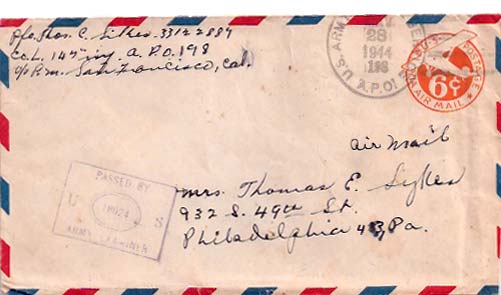 Pfc. Thos. C. Sykes 33122889
Co. L. 147" inf. A.P.O. 198
c/o P.m. San Francisco, Cal
U.S. ARM
28
1944
198
A.P.O.
U.S. POSTAGE
6¢
AIR MAIL
air mail
mrs. Thomas E. Sykes
932 S. 49th St.
Philadelphia 43, Pa.
PASSED BY
U S
ARMY EXAMINER